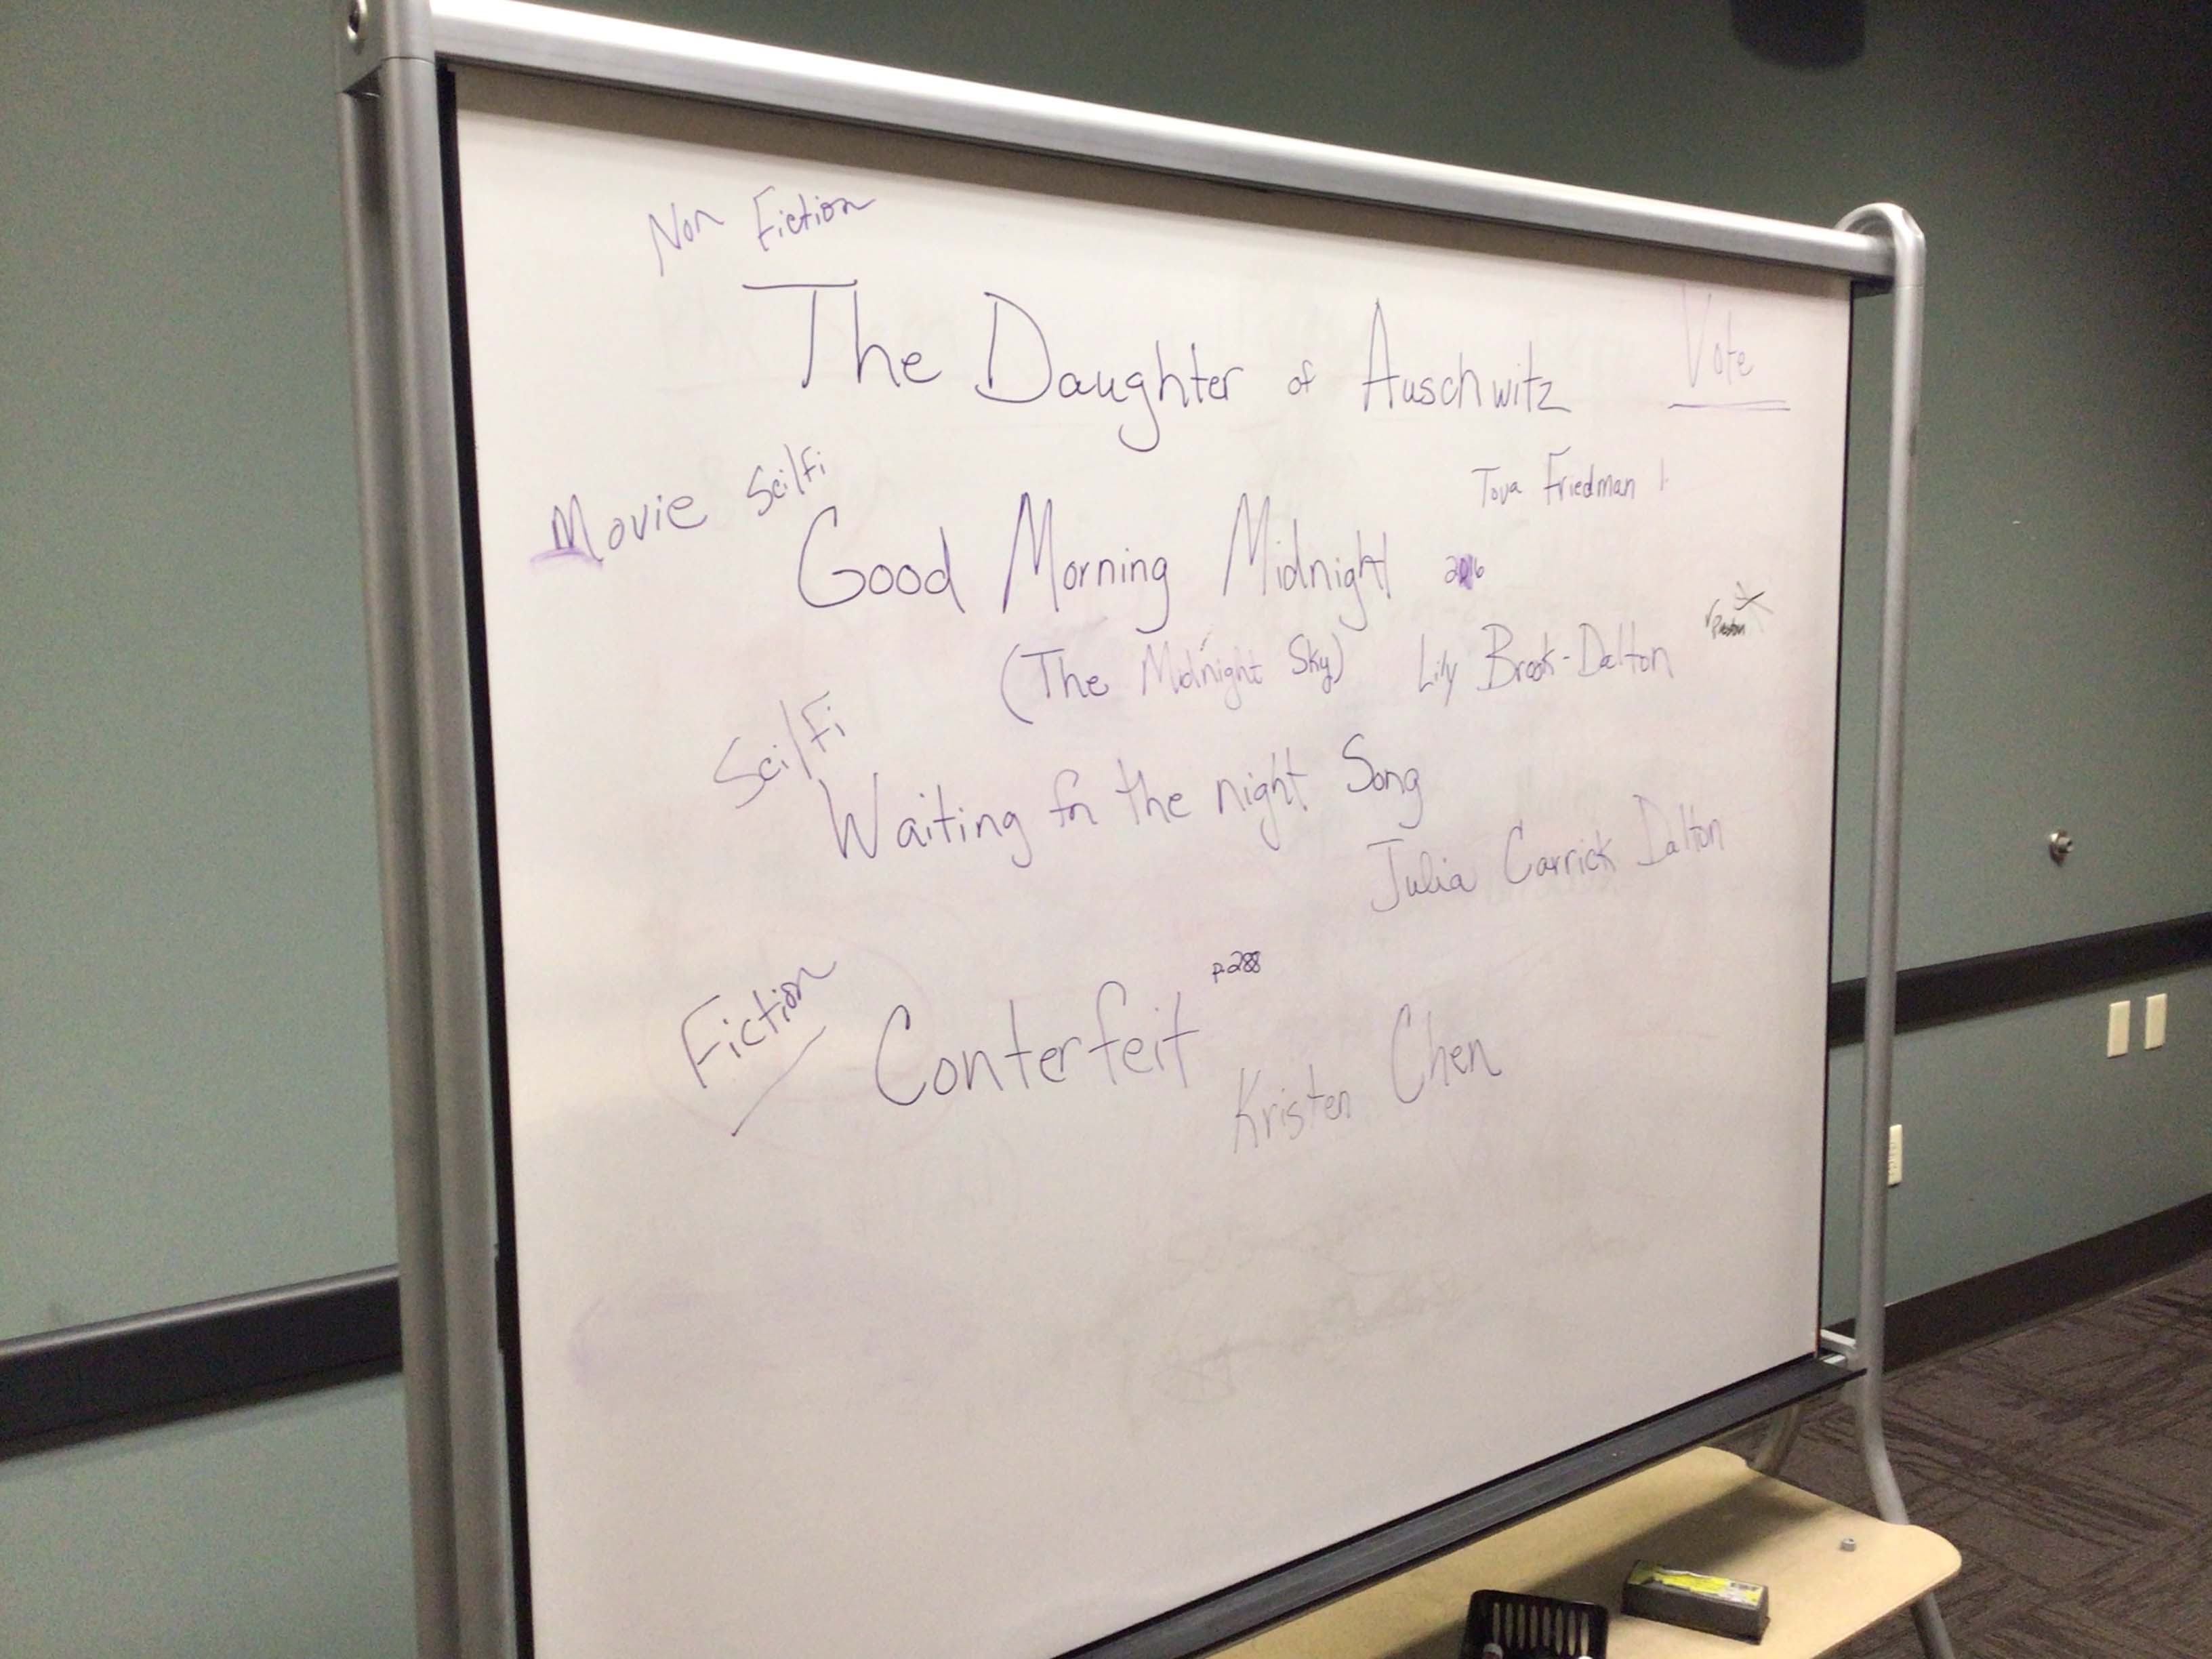 Non Fiction
The Daughter of Auschwitz Vote
Tova Friedman
Movie Sci/Fi
Good Morning Midnight 2016
(The Midnight Sky) Lily Brook-Dalton
Sci/Fi
Waiting for the night Song
Julia Carrick Dalton
Fiction
Conterfeit p.288
Kristen Chen